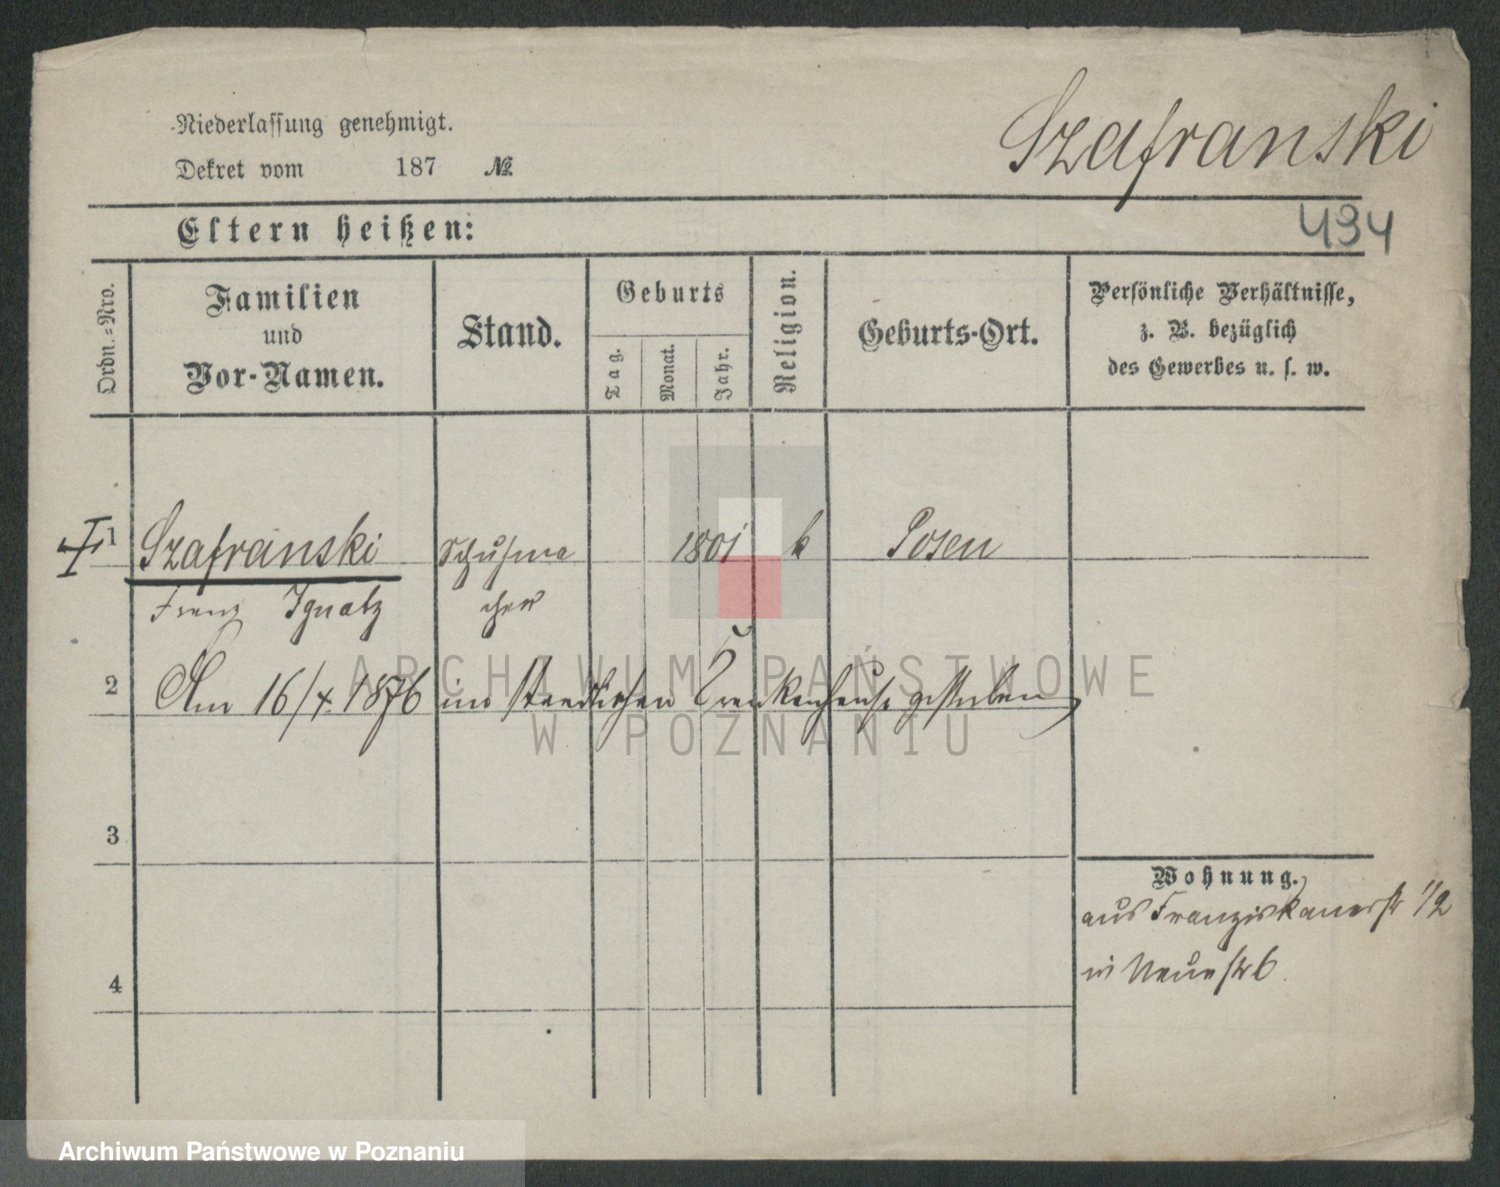 Niederlassung genehmigt.
Szafranski
Dekret vom 187 №
Eltern heißen:
494
Ordn.-Nro.
Familien
und
Vor-Namen.
Stand.
Geburts
Tag.
Monat.
Jahr.
Religion.
Geburts-Ort.
Persönliche Verhältnisse,
z. B. bezüglich
des Gewerbes u. s. w.
I 1 Szafranski Schuhma 1801 k Posen
Franz Ignatz cher
2 Am 16/X. 1876 im staedtischen Krankenhause gestorben
ARCHIWUM PAŃSTWOWE
W POZNANIU
3
Wohnung.
aus Franziskanerstr 1/2
in Neuestr 6
4
Archiwum Państwowe w Poznaniu